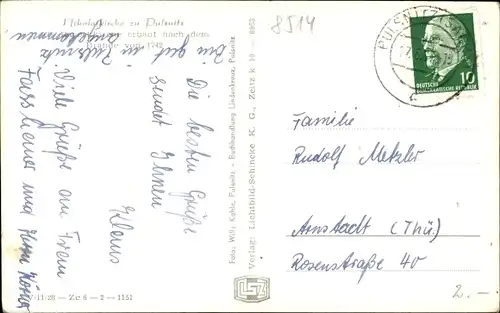 Nikolaikirche zu Pulsnitz
erbaut nach dem
Brande von 1742
Bin gut in Pulsnitz
angekommen
Die besten Grüße
sendet Ihnen
Klaus
Viele Grüße an Frau
und Herrn
V/11/28 — Zc 6 — 2 — 1151
Foto: Willy Kahle, Pulsnitz - Buchhandlung Lindenkreuz, Pulsnitz
Verlag: Lichtbild-Schincke K. G., Zeitz k 10 8863
LSZ
8514
PULSNITZ (SACHS)
10
DEUTSCHE
DEMOKRATISCHE REPUBLIK
Familie
Rudolf Metzler
Arnstadt (Thü)
Rosenstraße 40
2.-